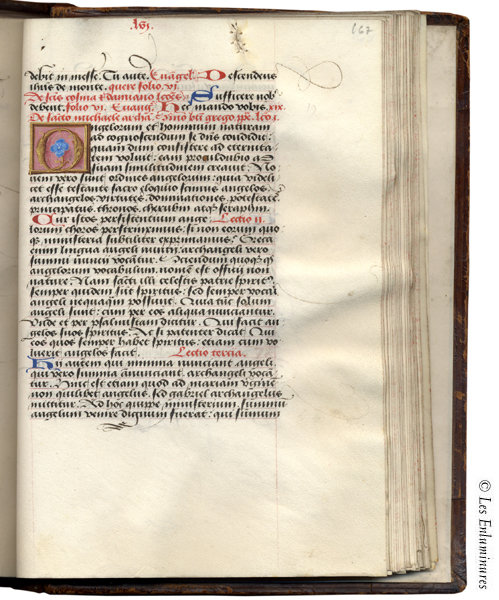 167
debit in messe. Tu aute. Euangel. Descendens
ihus de monte. quere folio vi
De scis cosma et damiano lcões. Sufficere vob
debent. folio vi. Euang. Hec mando vobis. xix.
De sancto michaele archa.
Angelorum et hominum naturam
ad cognoscendum se deus condidit:
quam dum consistere ad eternita
tem voluit: eam procul dubio ad
suam similitudinem creauit. No
uem vero sunt ordines angelorum: quia videli
cet esse testante sacro eloquio scimus angelos.
archangelos. virtutes. dominationes. potestates.
principatus. thronos. cherubin atque seraphin.
Cur istos persistentium ange Lectio ii
lorum choros perstrinximus: si non eorum quo
que ministeria subtiliter exprimamus: Greca
enim lingua angeli nuntii: archangeli vero
summi nuncii vocatur. Et sciendum quoque quod
angelorum vocabulum. nomen est officii non
nature. Nam sancti illi celestis patrie spiritus
semper quidem sunt spiritus: sed semper vocari
angeli nequaquam possunt. Quia tunc solum
angeli sunt: cum per eos aliqua nuntiantur.
Unde et per psalmistam dicitur. Qui facit an
gelos suos spiritus. Ac si patenter dicat: Qui
eos quos semper habet spiritus: etiam cum vo
luerit angelos facit. Lectio tercia.
Hi autem qui minima nunciant angeli:
qui vero summa annuntiant archangeli voca
tur. Hinc est etiam quod ad mariam virginem
non quilibet angelus. sed gabriel archangelus
mittitur. Ad hoc quippe ministerium summum
angelum venire dignum fuerat: qui summum
© Les Enluminures